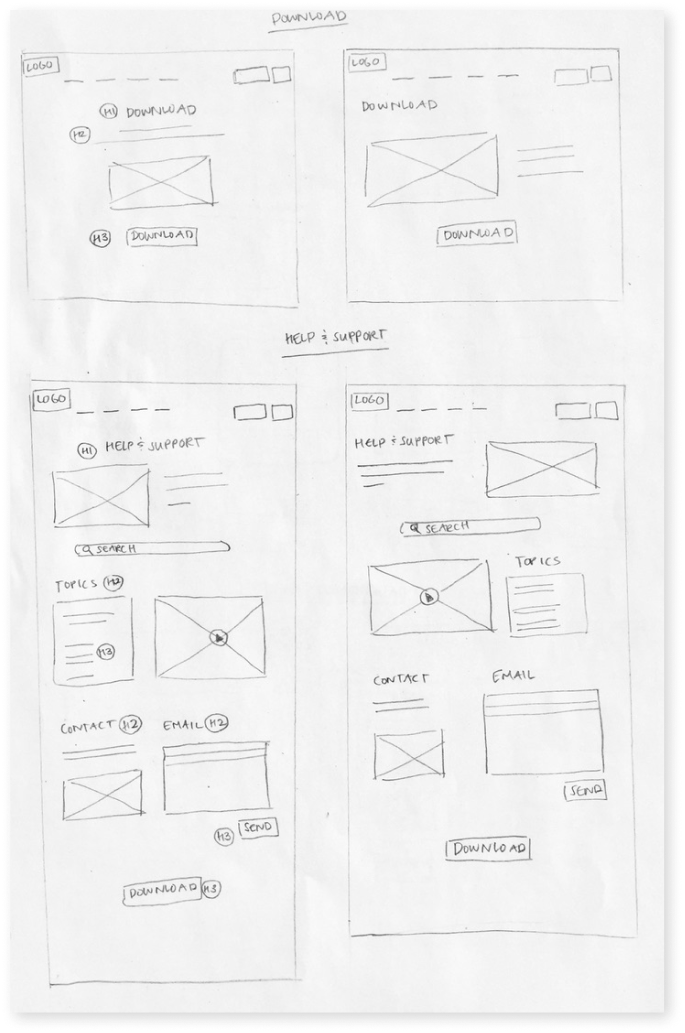 DOWNLOAD
LOGO
H1 DOWNLOAD
H2
H3 DOWNLOAD
LOGO
DOWNLOAD
DOWNLOAD
HELP & SUPPORT
LOGO
H1 HELP & SUPPORT
SEARCH
TOPICS H2
H3
CONTACT H2 EMAIL H2
H3 SEND
DOWNLOAD H3
LOGO
HELP & SUPPORT
SEARCH
TOPICS
CONTACT EMAIL
SEND
DOWNLOAD